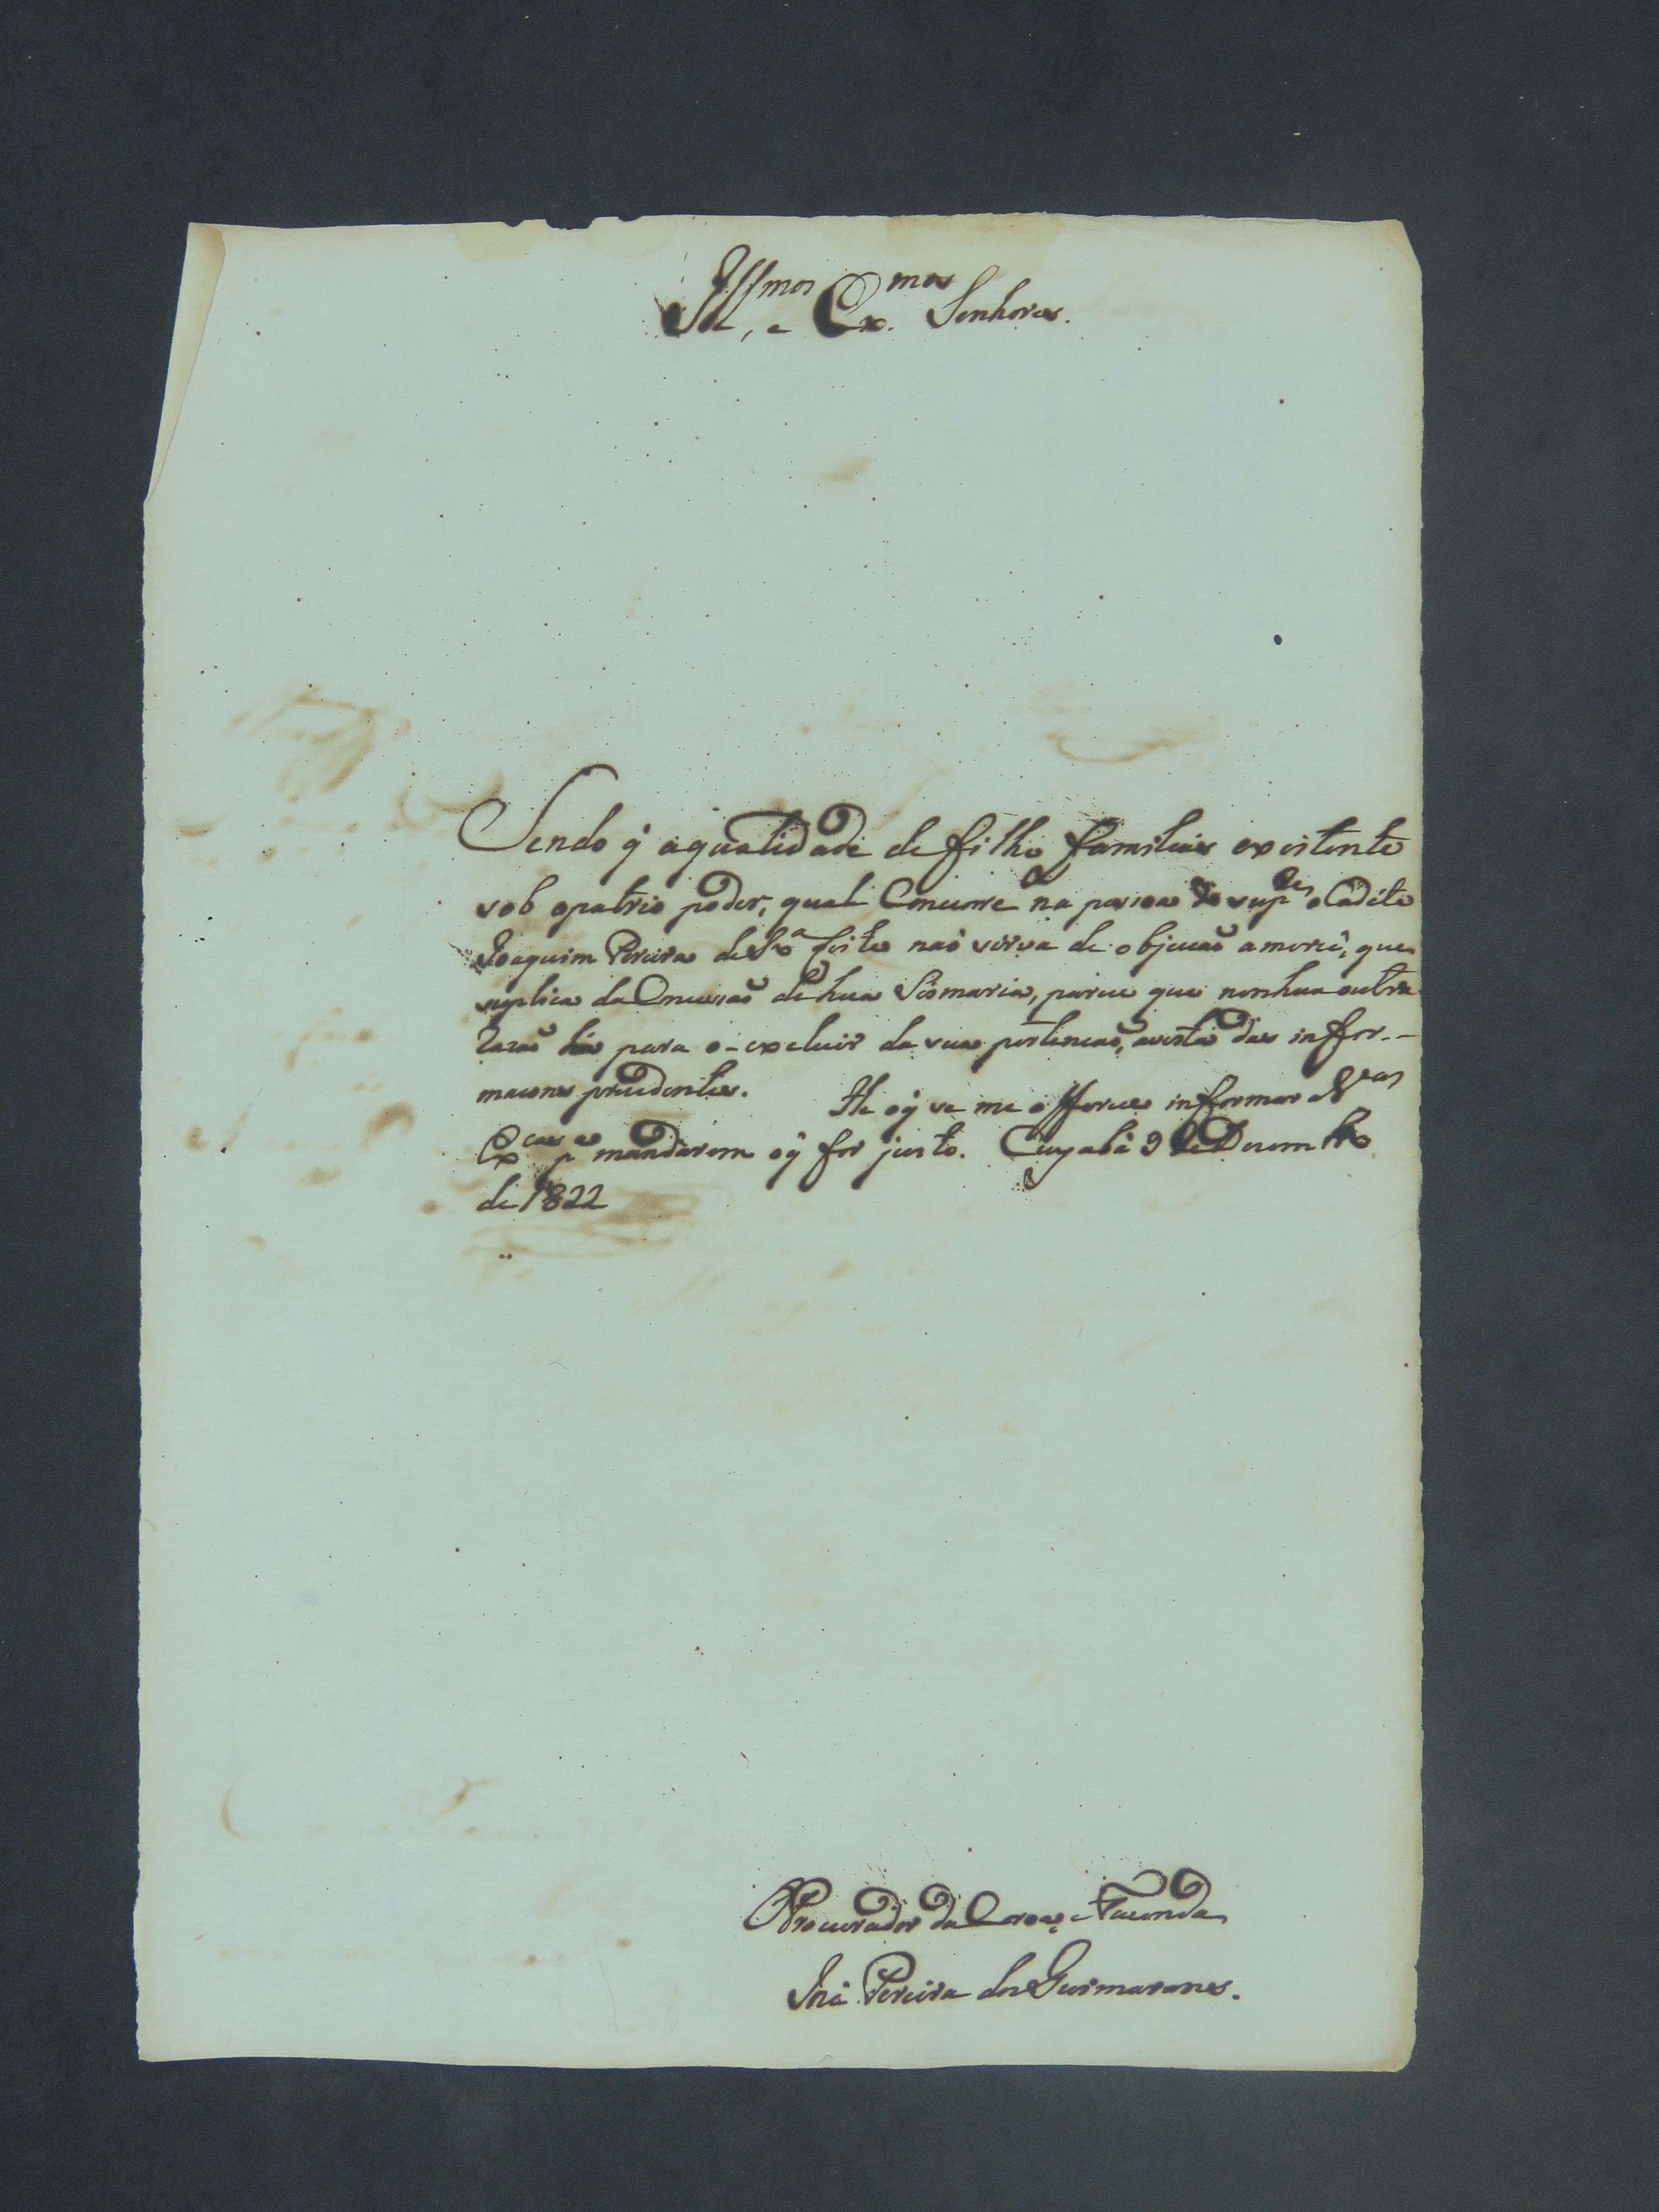 Ill.mos, e Ex.mos Senhores.
Sendo q̃ aqualidade de filho familias existente
sob opatrio poder, qual Concorre na pessoa do sup.e o Cadete
Joaquim Pereira de Leite naõ sirva de objecaõ amercê, que
suplica da Concesaõ de hua Sismaria, parece que nenhua outra
razaõ há para o-excluir da sua pertencaõ, avista das infor--
macones precedentes. He oq̃ se me offerece informar a V.as
Ex.cas p.a mandarem oq̃ for justo. Cuyabá 9 de Dezembro
de 1822
OProcurador da Coroa, e Fazenda
José Pereira dos Guimaraens.